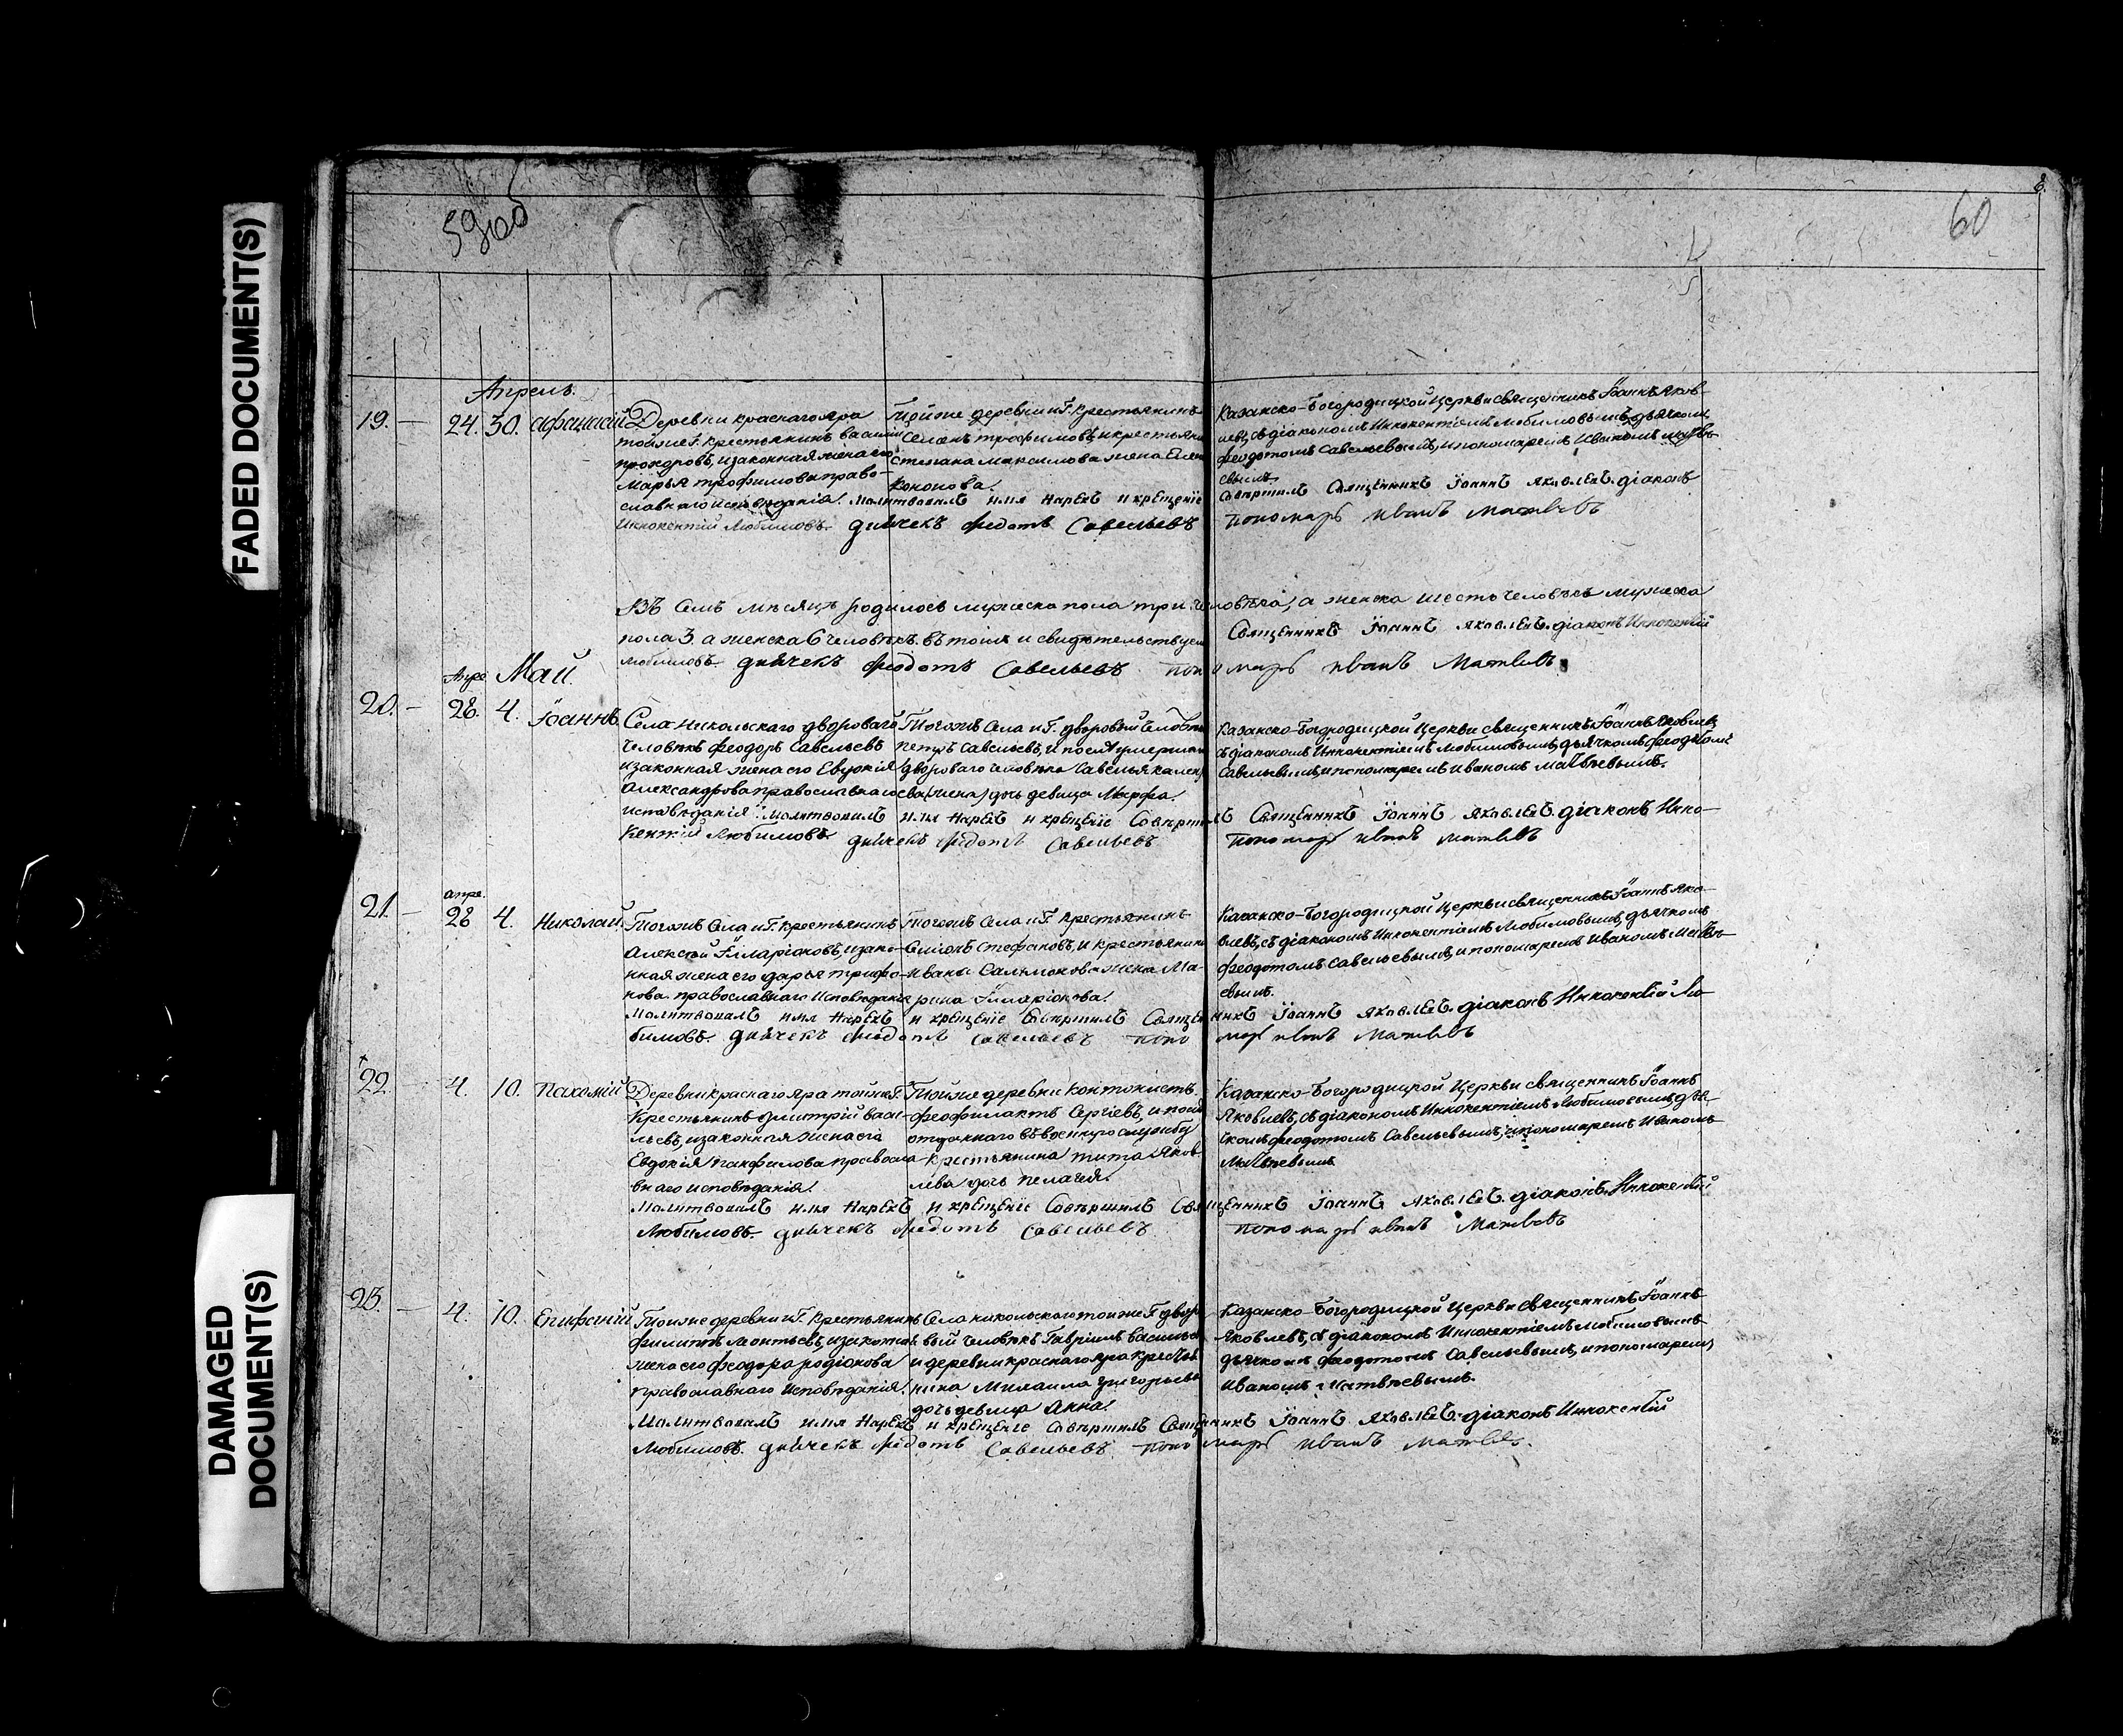 FADED DOCUMENT(S)
DAMAGED
DOCUMENT(S)
59об
60
Апрель.
19. — 24. 30. Афанасий
Деревни красного яра
тойже Г. крестьянинъ василий
прохоровъ, изаконная жена его
Марья трофимова право-
славнаго исповѣданія.
Тойже деревни и Г. крестьянинъ
Семенъ трофимовъ, икрестьяни
степана максимова жена Елен
Кононова.
Казанско-Богородицкой Церкви священникъ Іоаннъ Яков-
левъ, съ діакономъ Иннокентіемъ Любимовымъ, дьячкомъ
феодотомъ Савельевымъ, и пономаремъ Иваномъ матвѣ-
евымъ.
Молитвовалъ имя нарекъ и крещеніе совершилъ Священникъ Іоаннъ Яковлевъ. діаконъ
Иннокентий Любимовъ. дьячекъ Федотъ Савельевъ пономарь иванъ Матвѣевъ
Въ семъ мѣсяцѣ родилось мужеска пола три человѣка, а женска шесть человѣкъ мужеска
пола 3. а женска 6 человѣкъ. въ томъ и свидѣтельствуем Священникъ Іоаннъ Яковлевъ. діаконъ Иннокентий
Любимовъ. дьячекъ Феодотъ Савельевъ пономарь иванъ Матвѣевъ
Май
Апре.
20. — 28. 4. Іоаннъ.
Села Никольскаго двороваго
человѣкъ феодоръ Савельевъ
изаконная жена его Евдокія
Александрова православнаго
исповѣданія.
Тогожъ Села и Г. дворовый человѣкъ
петръ Савельевъ, и послѣ умершаго
двороваго человѣка Савелья
дочь девица Марфа.
Казанско-Богородицкой Церкви священникъ Іоаннъ Яковлевъ,
съ діакономъ Иннокентіемъ Любимовымъ, дьячкомъ феодотомъ
Савельевымъ, и пономаремъ Иваномъ Матвѣевымъ.
Молитвовалъ имя нарекъ и крещеніе совершилъ Священникъ Іоаннъ Яковлевъ. діаконъ Инно-
кентій Любимовъ. дьячекъ Федотъ Савельевъ пономарь иванъ матвѣевъ
апре.
21. — 28 4. Николай.
Тогожъ Села и Г. Крестьянинъ
Алексѣй Иларіоновъ, изако-
нная жена его дарья трифо-
нова. православнаго исповѣданія
Тогожъ Села и Г. Крестьянинъ
Симонъ Стефановъ, и крестьянина
Ивана жена Ма-
рина Иларіонова.
Казанско-Богородицкой Церкви священникъ Іоаннъ Яко-
влевъ, съ діакономъ Иннокентіемъ Любимовымъ, дьячкомъ
феодотомъ Савельевымъ, и пономаремъ Иваномъ Матвѣ-
евымъ.
Молитвовалъ имя нарекъ и крещеніе совершилъ Священникъ Іоаннъ Яковлевъ. діаконъ Иннокентий Лю-
бимовъ. дьячекъ Федотъ Савельевъ пономарь иванъ Матвѣевъ
22. 4. 10. Пахомій
Деревни красного яра тойже Г.
Крестьянинъ дмитрій Васи-
льевъ, изаконная жена его
Евдокія панфилова правосла-
внаго исповѣданія.
Тойже деревни
феофилактъ Сергіевъ, и
отданнаго въ военную службу
крестьянина тита Яков-
лева дочь пелагия.
Казанско-Богородицкой Церкви священникъ Іоаннъ
Яковлевъ, съ діакономъ Иннокентіемъ Любимовымъ, дья-
чкомъ феодотомъ Савельевымъ, и пономаремъ Иваномъ
Матвѣевымъ
Молитвовалъ имя нарекъ и крещеніе совершилъ Священникъ Іоаннъ Яковлевъ. діаконъ Иннокентий
Любимовъ. дьячекъ Федотъ Савельевъ пономарь иванъ Матвѣевъ
23. — 4. 10. Епифаній
Тойже деревни и Г. Крестьянинъ
филиппъ Леонтьевъ, изаконная
жена его феодора родіонова
православнаго исповѣданія.
Села никольскаго тойже Г. дворо-
вый человѣкъ Гавріилъ васильевъ
и деревни красного яра крестья-
нина Михаила григорьева
дочь девица Анна.
Казанско-Богородицкой Церкви священникъ Іоаннъ
Яковлевъ, съ діакономъ Иннокентіемъ Любимовымъ
дьячкомъ феодотомъ Савельевымъ, и пономаремъ
Иваномъ Матвѣевымъ.
Молитвовалъ имя нарекъ и крещеніе совершилъ Священникъ Іоаннъ Яковлевъ. діаконъ Иннокентий
Любимовъ. дьячекъ Федотъ Савельевъ. пономарь иванъ Матвѣевъ.